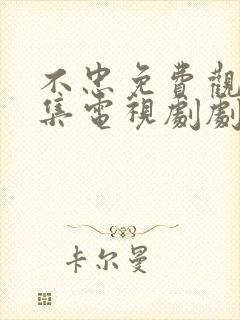 不忠免費觀
集電視劇劇
卡尔曼